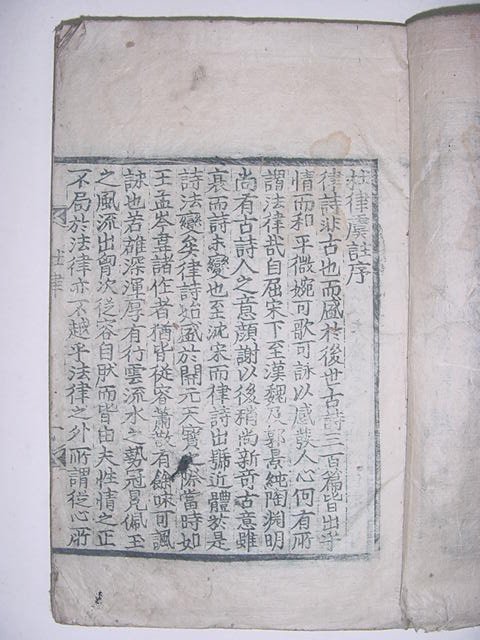 杜律虞註序
律詩非古也而盛於後世古詩三百篇皆出乎
情而和平微婉可歌可詠以感發人心何有所
謂法律哉自屈宋下至漢魏及郭景純陶淵明
尚有古詩人之意顔謝以後稍尚新奇古意雖
衰而詩未變也至沈宋而律詩出號近體於是
詩法變矣律詩始盛於開元天寶之際當時如
王孟岑韋諸作者猶皆從容蕭散有餘味可諷
詠也若雄深渾厚有行雲流水之勢冠冕佩玉
之風流出胷次從容自肰而皆由夫性情之正
不局於法律亦不越乎法律之外所謂從心所
杜律